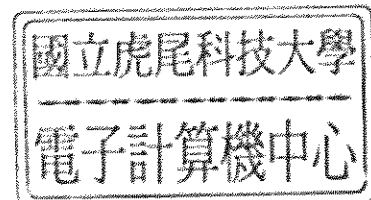 國立虎尾科技大學
電子計算機中心